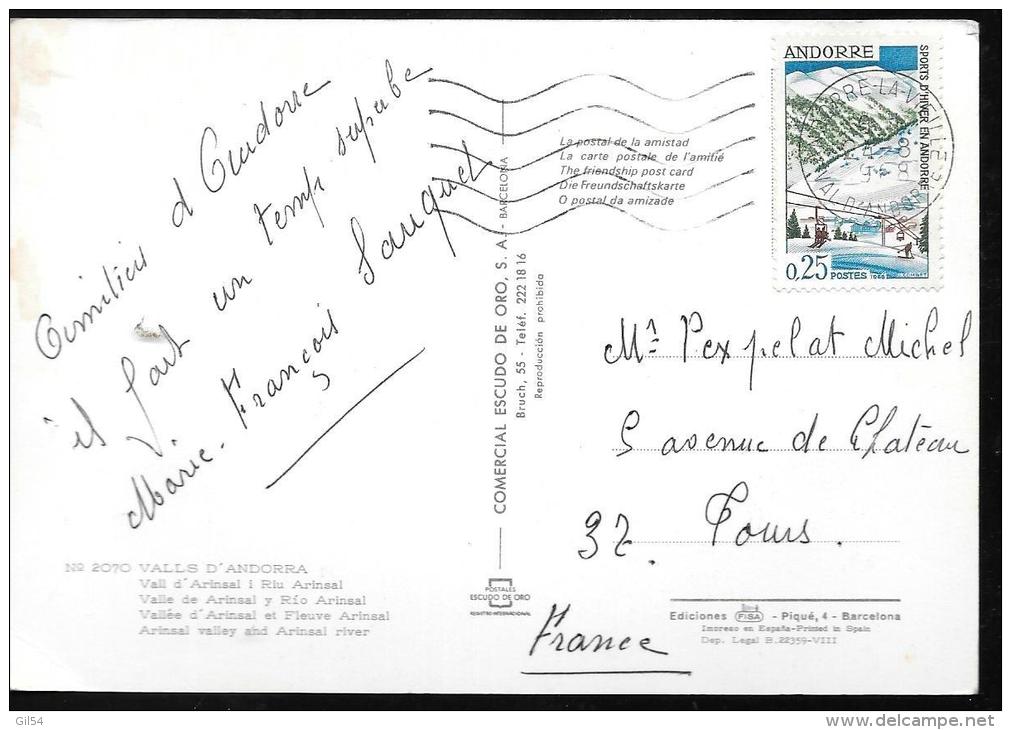 Amitiés d'Andorre
il fait un temps superbe
Marie-François Sauquet
Nº 2070 VALLS D'ANDORRA
Vall d'Arinsal i Riu Arinsal
Valle de Arinsal y Río Arinsal
Vallée d'Arinsal et Fleuve Arinsal
Arinsal valley and Arinsal river
COMERCIAL ESCUDO DE ORO, S. A. - BARCELONA
Bruch, 55 - Teléf. 222 18 16
Reproducción prohibida
POSTALES
ESCUDO DE ORO
REGISTRO INTERNACIONAL
La postal de la amistad
La carte postale de l'amitié
The friendship post card
Die Freundschaftskarte
O postal da amizade
ANDORRE
SPORTS D'HIVER EN ANDORRE
0,25 POSTES 1966
ANDORRE-LA-VIEILLE
VAL D'ANDORRE
Mr Pexpelat Michel
5 avenue de Château
37. Tours.
France
Ediciones FISA - Piqué, 4 - Barcelona
Impreso en España-Printed in Spain
Dep. Legal B.22359-VIII
Gil54
delcampe.net